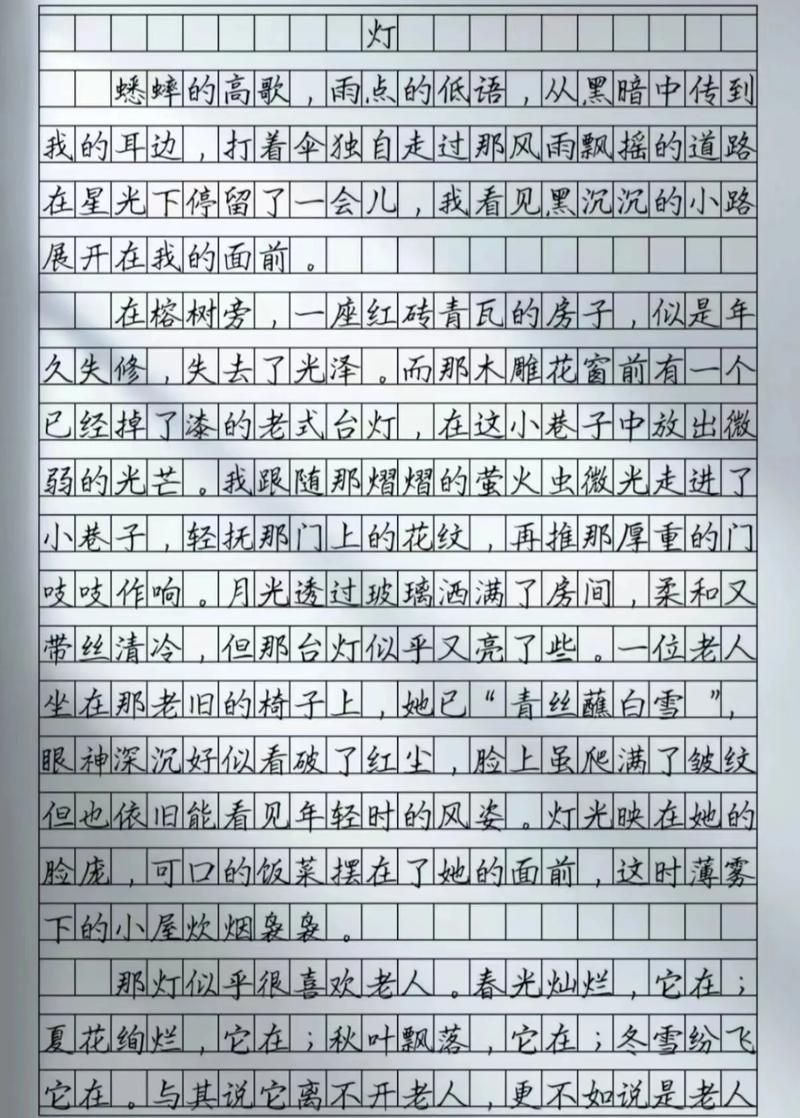 灯
蟋蟀的高歌，雨点的低语，从黑暗中传到
我的耳边，打着伞独自走过那风雨飘摇的道路
在星光下停留了一会儿，我看见黑沉沉的小路
展开在我的面前。
在榕树旁，一座红砖青瓦的房子，似是年
久失修，失去了光泽。而那木雕花窗前有一个
已经掉了漆的老式台灯，在这小巷子中放出微
弱的光芒。我跟随那熠熠的萤火虫微光走进了
小巷子，轻抚那门上的花纹，再推那厚重的门
吱吱作响。月光透过玻璃洒满了房间，柔和又
带丝清冷，但那台灯似乎又亮了些。一位老人
坐在那老旧的椅子上，她已“青丝蘸白雪”，
眼神深沉好似看破了红尘，脸上虽爬满了皱纹
但也依旧能看见年轻时的风姿。灯光映在她的
脸庞，可口的饭菜摆在了她的面前，这时薄雾
下的小屋炊烟袅袅。
那灯似乎很喜欢老人。春光灿烂，它在；
夏花绚烂，它在；秋叶飘落，它在；冬雪纷飞
它在。与其说它离不开老人，更不如说是老人